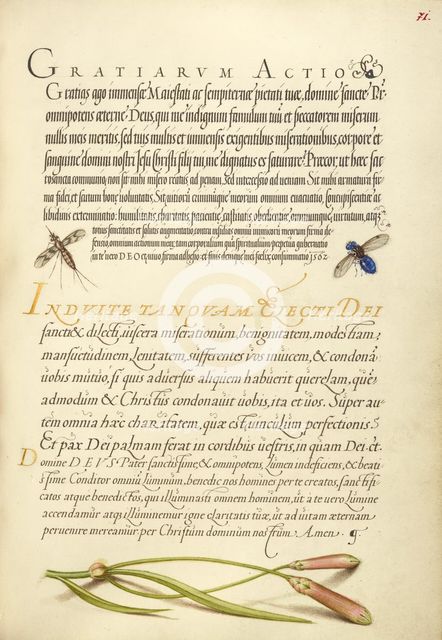 71.
GRATIARVM ACTIO
Gratias ago immensæ Maiestati ac sempiternæ pietati tuæ, domine sancte Pr̄
omnipotens æterne Deus, qui me indignum famulum tuū et peccatorem miserum
nullis meis meritis, sed tuis multis et immensis exigentibus miserationibus, corpore et
sanguine domini nostri Jesu Christi filij tui, me dignatus es saturare. Præcor, ut hæc sac
rosancta communio, non sit mihi misero reatus ad penam, sed intercessio ad ueniam. Sit mihi armatura fir-
ma fidei, et scutum bonę uoluntatis. Sit uitiorū cunctorumque meorum omnium euacuatio, concupiscentiæ at
libidinis exterminatio: humilitatis, charitatis, patientiæ, castitatis, obedientiæ, omniumque uirtutum, atq̄
tionis sanctitatis et salutis augmentatio, contra insidias omniū inimicorū meorum firma de-
fensio, omnium actionum mearū, tam corporalium quā spiritualium perpetua gubernatio
in te uero DEO et uiuo firma adhesio et finis demum mei felix consummatio 1562
INDVITE TANQVAM ELECTI DEI
sancti & dilecti, uiscera miserationum, benignitatem, modestiam,
mansuetudinem, lenitatem, sufferentes uos inuicem, & condonā
uobis mutuo, si quis aduersus aliquem habuerit querelam, quē
admodum & Christus condonauit uobis, ita et uos. Super au-
tem omnia hæc charitatem, quæ est uinculum perfectionis.
Et pax Dei palmam ferat in cordibus uestris, in quam Dei. et.
Domine DEVS Pater sanctissime, & omnipotens, Lumen indeficiens, & beati
ssime Conditor omniū Luminum, benedic nos homines per te creatos, sanctifi-
catos atque benedictos, qui illuminasti omnem hominem, ut à te uero Lumine
accendamur atque illuminemur igne claritatis tuæ, ut ad uitam æternam
peruenire mereamur per Christum dominum nostrum. Amen.